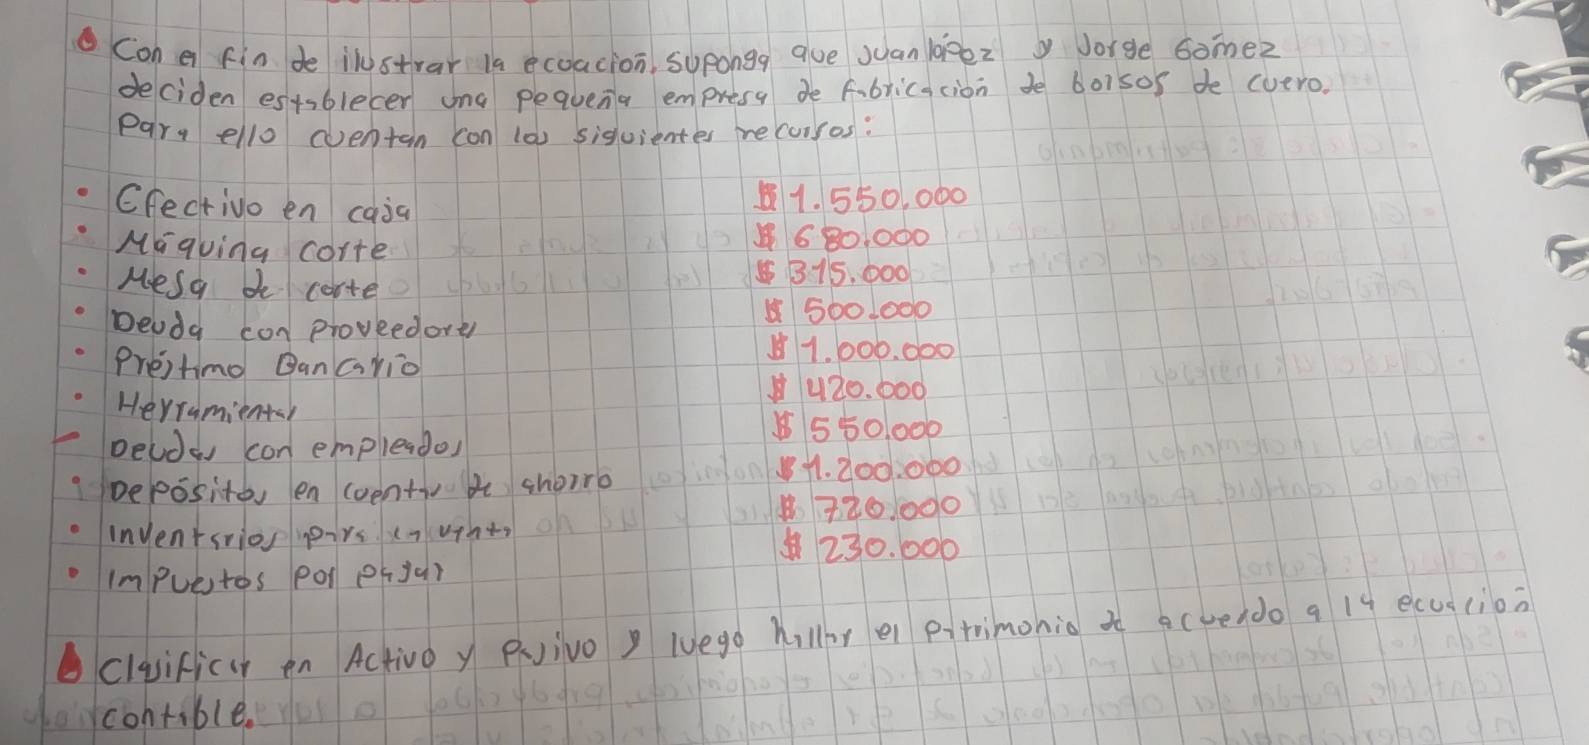 Con el fin de ilustrar la ecoación, suponga que Juan lópez y Jorge Gómez
deciden establecer una pequeña empresa de fabricación de bolsos de cuero.
Para ello cuentan con los siguientes recursos:
• Efectivo en caja $ 1.550.000
• Máquina corte $ 680.000
• Mesa de corte $ 315.000
• Deuda con proveedores $ 500.000
• Préstimo Bancario $ 1.000.000
• Herramientas $ 420.000
– Deudas con empleados $ 550.000
• Depósitos en cuentas de ahorro $ 1.200.000
• inventarios para la venta $ 720.000
• impuestos por pagar $ 230.000
Clasificar en Activo y pasivo y luego hallar el patrimonio de acuerdo a la ecuación
contable.